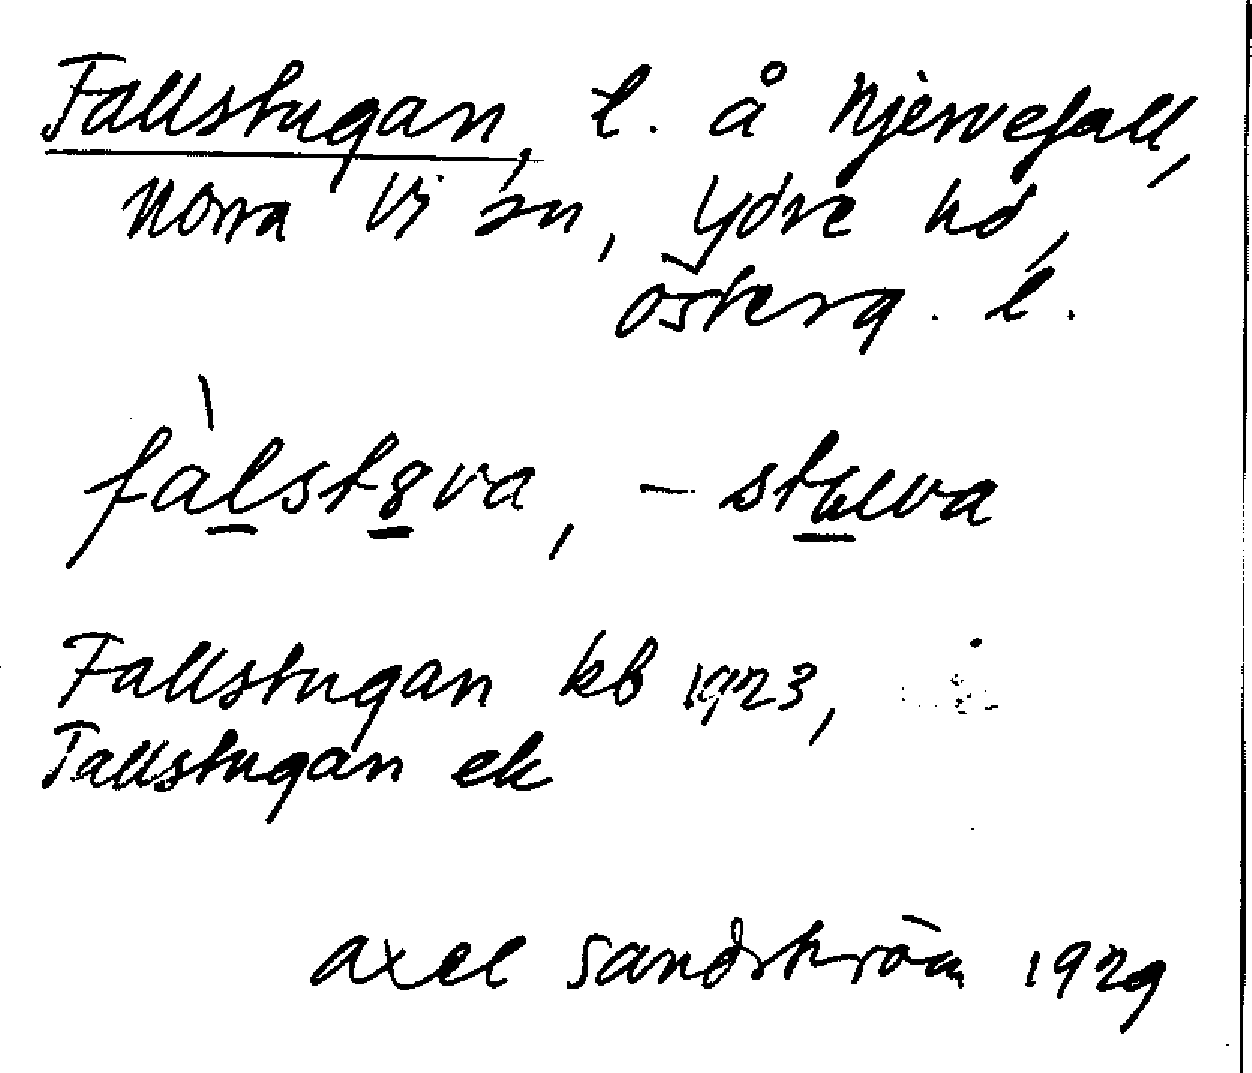 Fallstugan, l. å Njervefall,
Norra Vi sn, Ydre hd,
Österg. l.
fàlstȣva, - stuva
Fallstugan kb 1923,
Fallstugan ek
Axel Sandström 1929